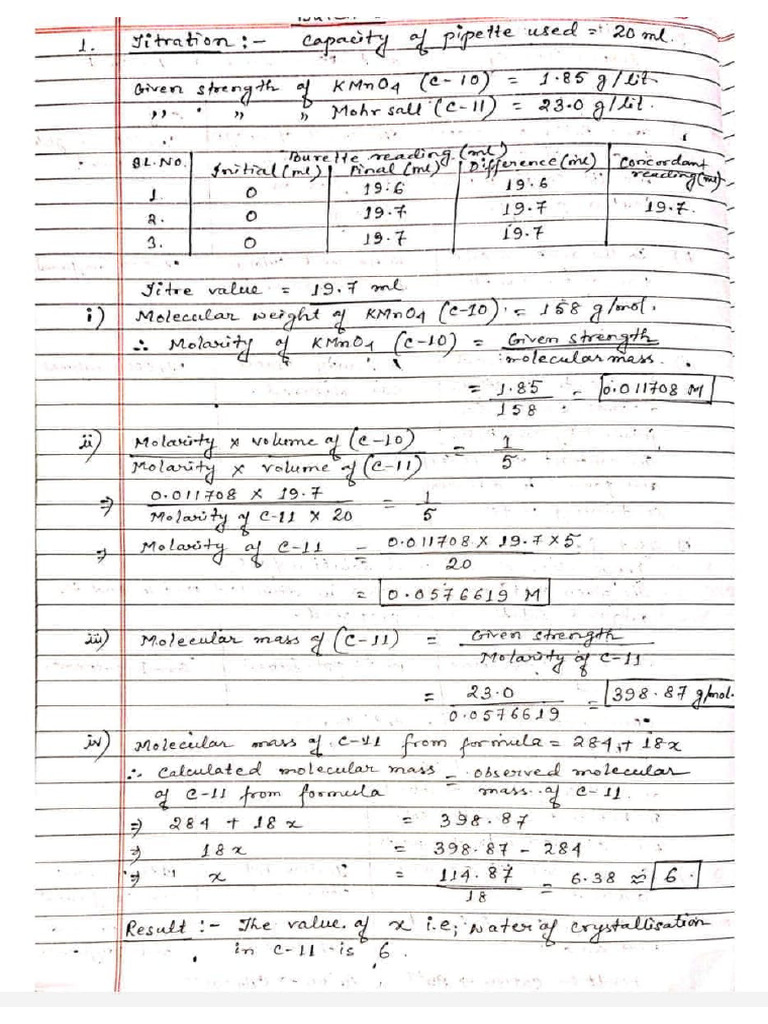 1. Titration :- Capacity of pipette used = 20 ml.
Given strength of KMnO4 (C-10) = 1.85 g/lit.
,, ,, ,, Mohr salt (C-11) = 23.0 g/lit.
SL.NO. Burette reading (ml) Concordant reading (ml)
Initial (ml) Final (ml) Difference (ml)
1. 0 19.6 19.6
2. 0 19.7 19.7 19.7
3. 0 19.7 19.7
Titre value = 19.7 ml
i) Molecular weight of KMnO4 (C-10) = 158 g/mol.
∴ Molarity of KMnO4 (C-10) = Given strength / molecular mass.
= 1.85 / 158 = 0.011708 M
ii) Molarity x volume of (C-10) / Molarity x volume of (C-11) = 1 / 5
⇒ 0.011708 x 19.7 / Molarity of C-11 x 20 = 1 / 5
⇒ Molarity of C-11 = 0.011708 x 19.7 x 5 / 20
= 0.0576619 M
iii) Molecular mass of (C-11) = Given strength / Molarity of C-11
= 23.0 / 0.0576619 = 398.87 g/mol.
iv) Molecular mass of C-11 from formula = 284 + 18x
∴ Calculated molecular mass = observed molecular
of C-11 from formula mass of C-11
⇒ 284 + 18x = 398.87
⇒ 18x = 398.87 - 284
⇒ x = 114.87 / 18 = 6.38 ≈ 6.
Result :- The value of x i.e; water of crystallisation
in C-11 is 6.